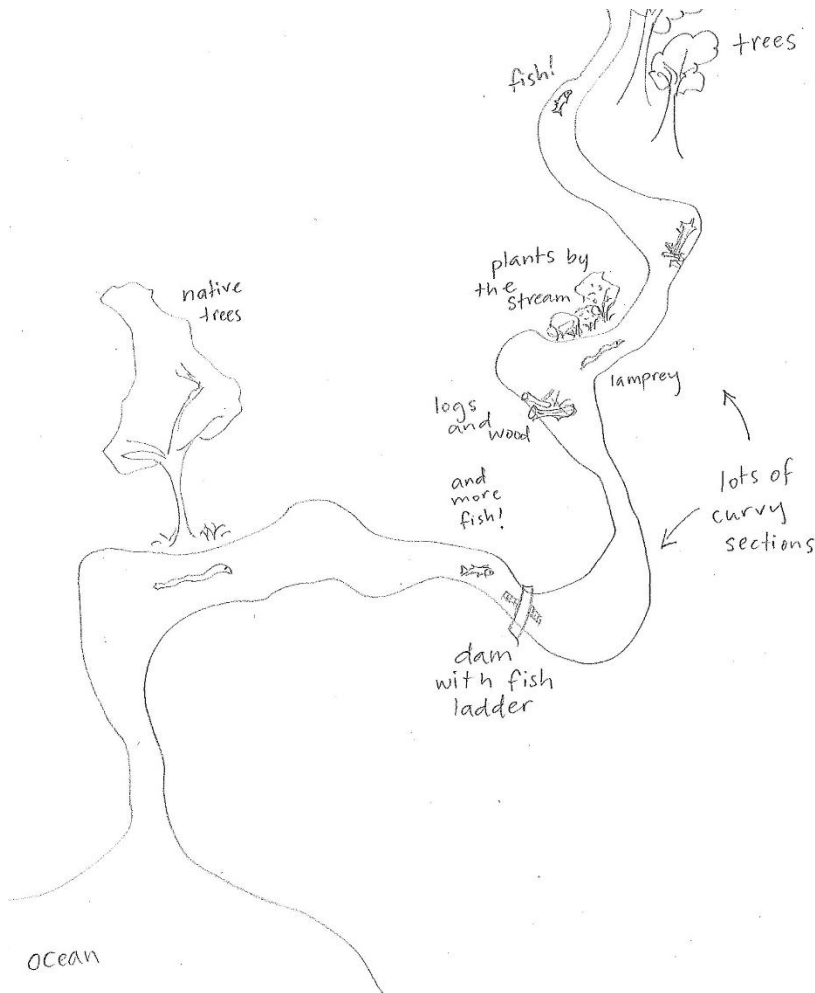 trees
fish!
plants by
the
stream
native
trees
lamprey
logs
and wood
and
more
fish!
lots of
curvy
sections
dam
with fish
ladder
ocean